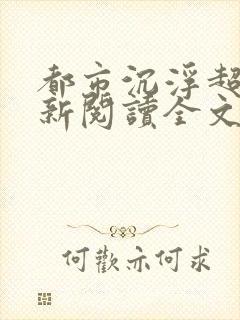 都市沉浮超
新閱讀全文
何歡亦何求